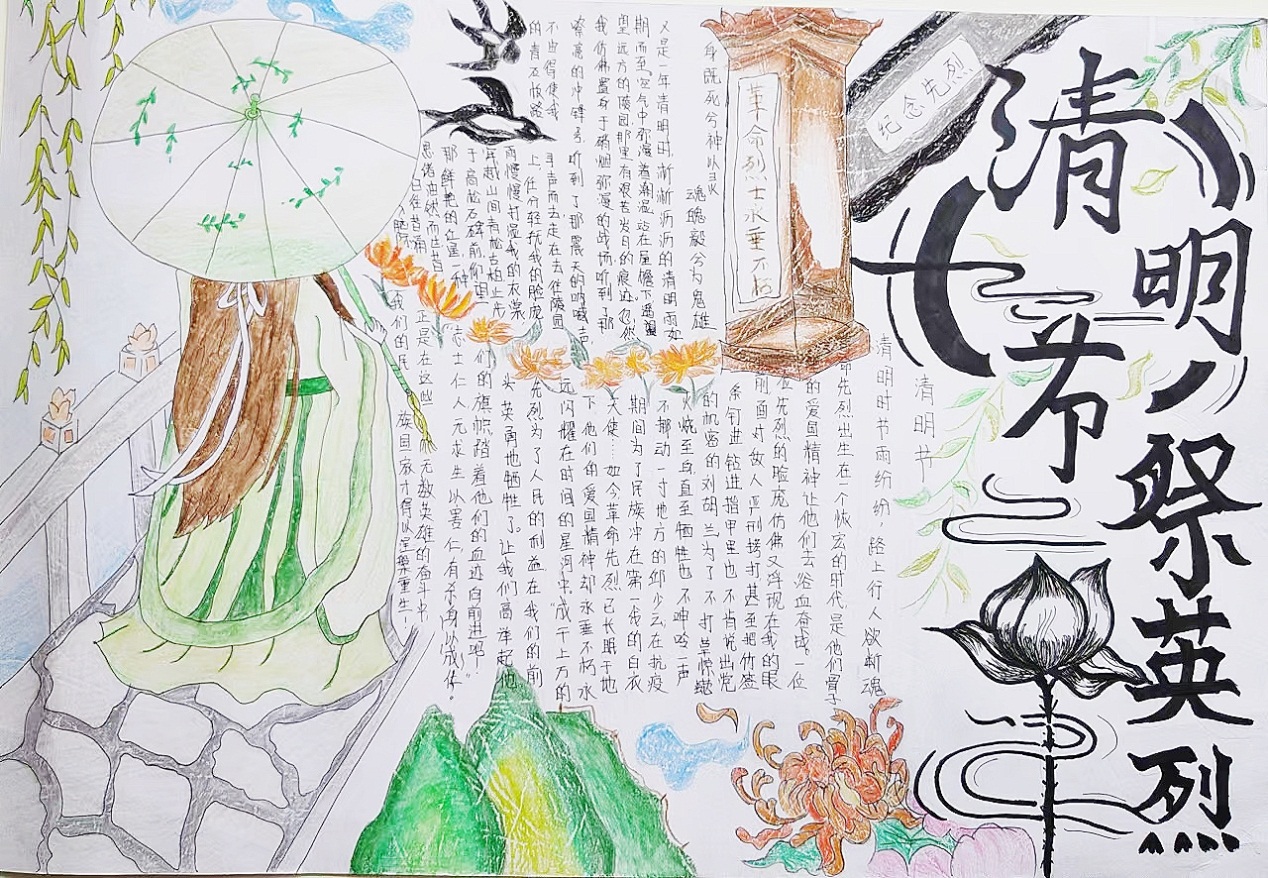 清明节
祭英烈
纪念先烈
革命烈士永垂不朽
清明节
清明时节雨纷纷 路上行人欲断魂。
身既死兮神以灵
魂魄毅兮为鬼雄
又是一年清明时,淅淅沥沥的清明雨如
期而至,空气中弥漫着潮湿站在屋檐下遥望
望远方的陵园那里有艰苦岁月的痕迹忽然
我仿佛置身于硝烟弥漫的战场听到了那
嘹亮的冲锋号,听到了那震天的呐喊声,
不由得使我 寻声而去走在去往陵园
的青石板路 上,任 轻抚我的脸庞
雨慢慢打湿我的衣裳
越山间青松古柏止步
于高 石碑前你
那鲜艳的红是一种
思绪
命先烈出生在一个恢宏的时代是他们骨子
的爱国精神让他们去浴血奋战。一位
位先烈的脸庞仿佛又浮现在我的眼
前面对敌人严刑拷打甚至把竹签
条钉进钻进指甲里也不肯说出党
的机密的刘胡兰为了不打草惊蛇
火烧至身直至牺牲也不呻吟一声
不挪动一寸地方的邱少云在抗疫
期间为了民族冲在第一线的白衣
天使…如今革命先烈已长眠于地
下他们的爱国精神却永垂不朽永
远闪耀在时间的星河中。“成千上万的
先烈为了人民的利益在我们的前
头英勇地牺牲了。让我们高举起他
们的旗帜踏着他们的血迹前进吧!”
“志士仁人无求生以害仁有杀身以成仁。”
正是在这些 无数英雄的奋斗中
我们的民 族国家才得以涅槃重生